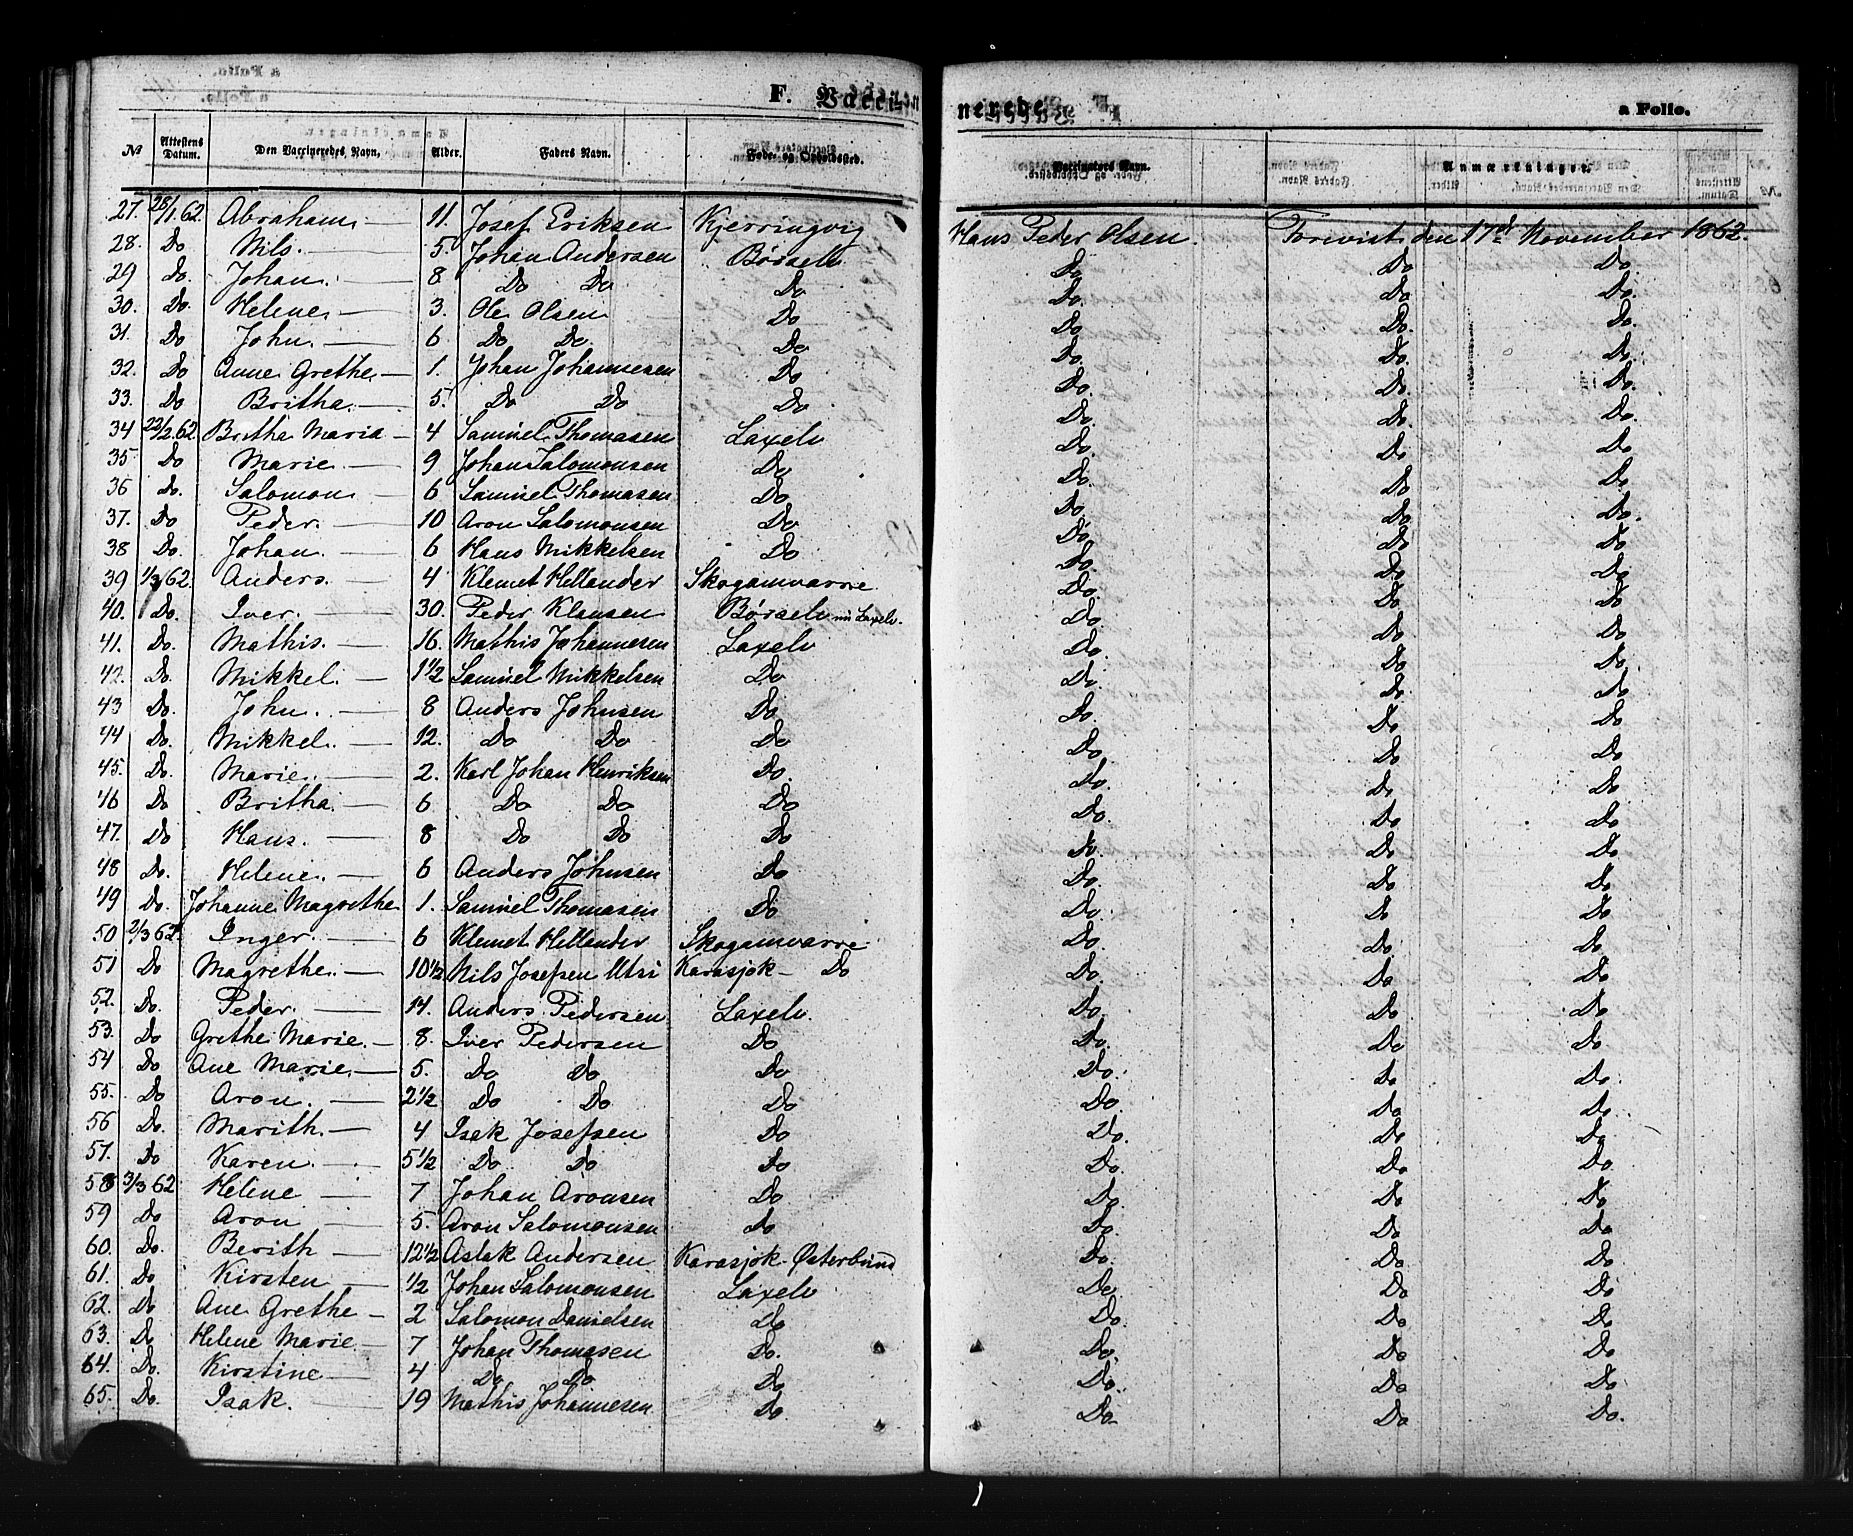 F. Vaccinerede. a Folio.
No Attestens Datum. Den Vaccineredes Navn. Alder. Faders Navn. Føde- og Opholdssted. Vaccinators Navn. Anmærkninger.
27. 28/1 62. Abraham. — 11. Josef Eriksen Kjerringvig Hans Peder Olsen. Forevist den 17de November 1862.
28. Do Nils. — 5. Johan Andersen Børselv Do Do Do.
29 Do. Johan. — 8 Do Do Do Do. Do Do.
30. Do. Helene. — 3. Ole Olsen Do Do Do. Do.
31. Do John. — 6 Do Do. Do Do. Do Do
32. Do Anne Grethe. — 1. Johan Johannesen Do Do Do Do.
33. Do Britha. — 5. Do Do Do Do Do. Do.
34 22/2 62. Britha Maria — 4 Samuel Thomasen Laxelv Do. Do. Do
35 Do Marie. — 9 Johan Salomonsen Do Do. Do Do
36 Do. Salomon. — 6 Samuel Thomasen Do Do Do Do.
37. Do Peder. — 10 Aron Salomonsen Do Do Do Do
38 Do. Johan. — 6 Hans Mikkelsen Do Do. Do Do
39 1/3 62. Anders. — 4 Klemet Hellander Skoganvarre Do Do Do
40. Do. Iver. — 30. Peder Klausen Børselv nu Laxelv. Do. Do Do.
41. Do. Mathis. — 16. Mathis Johannesen Laxelv Do. Do Do
42. Do. Mikkel. — 1 1/2 Samuel Mikkelsen Do Do. Do. Do
43 Do. John. — 8 Anders Johnsen Do Do. Do Do
44 Do. Mikkel. — 12. Do Do Do Do. Do. Do
45. Do. Marie. — 2. Karl Johan Henriksen Do. Do. Do Do.
46 Do Britha. — 6. Do Do Do Do. Do Do.
47. Do Hans. — 8 Do Do Do Do. Do Do.
48 Do. Helene. — 6 Anders Johnsen Do Do. Do Do.
49 Do. Johanne Magrethe 1. Samuel Thomasen Do Do. Do Do.
50 2/3 62. Inger. — 6 Klemet Hellander Skoganvarre Do. Do Do.
51 Do Magrethe. — 10 1/2 Nils Josefsen Utsi Karasjok — Do Do. Do Do
52. Do. Peder. — 14. Anders Pedersen Laxelv. Do. Do Do.
53. Do Grethe Marie. — 8. Iver Pedersen Do Do. Do Do.
54 Do. Ane Marie. — 5. Do Do Do Do. Do Do.
55. Do Aron. — 2 1/2 Do Do Do Do. Do Do.
56 Do. Marith. — 4 Isak Josefsen Do Do. Do Do.
57. Do Karen. — 5 1/2 Do Do Do Do. Do Do.
58 3/3 62 Helene — 7 Johan Aronsen Do Do. Do Do.
59 Do Aron — 5. Aron Salomonsen Do Do. Do Do.
60. Do. Berith — 12 1/2 Aslak Andersen Karasjok. Østerbund Do. Do Do.
61. Do Kirsten — 1/2 Johan Salomonsen Laxelv Do. Do Do.
62. Do Ane Grethe — 2 Salomon Danielsen Do Do. Do Do.
63. Do Helene Marie. — 7 Johan Thomasen Do. Do. Do Do.
64. Do. Kirstine. — 4 Do Do Do Do. Do Do.
65. Do. Isak. — 19 Mathis Johannesen Do. Do. Do Do.